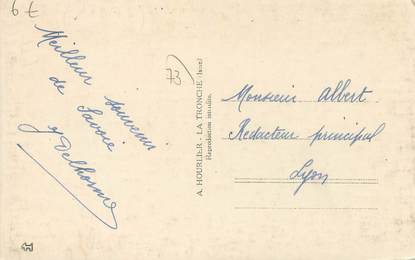 6 €
Meilleur souvenir
de Savoie
73
A. HOURLIER - LA TRONCHE (Isère)
Reproduction interdite.
Monsieur Albert
Rédacteur principal
Lyon